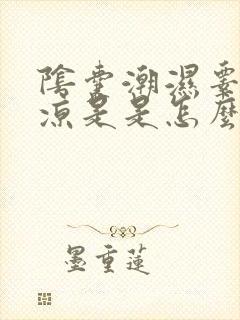 陰囊潮濕囊
涼是是怎麼
墨重蓮